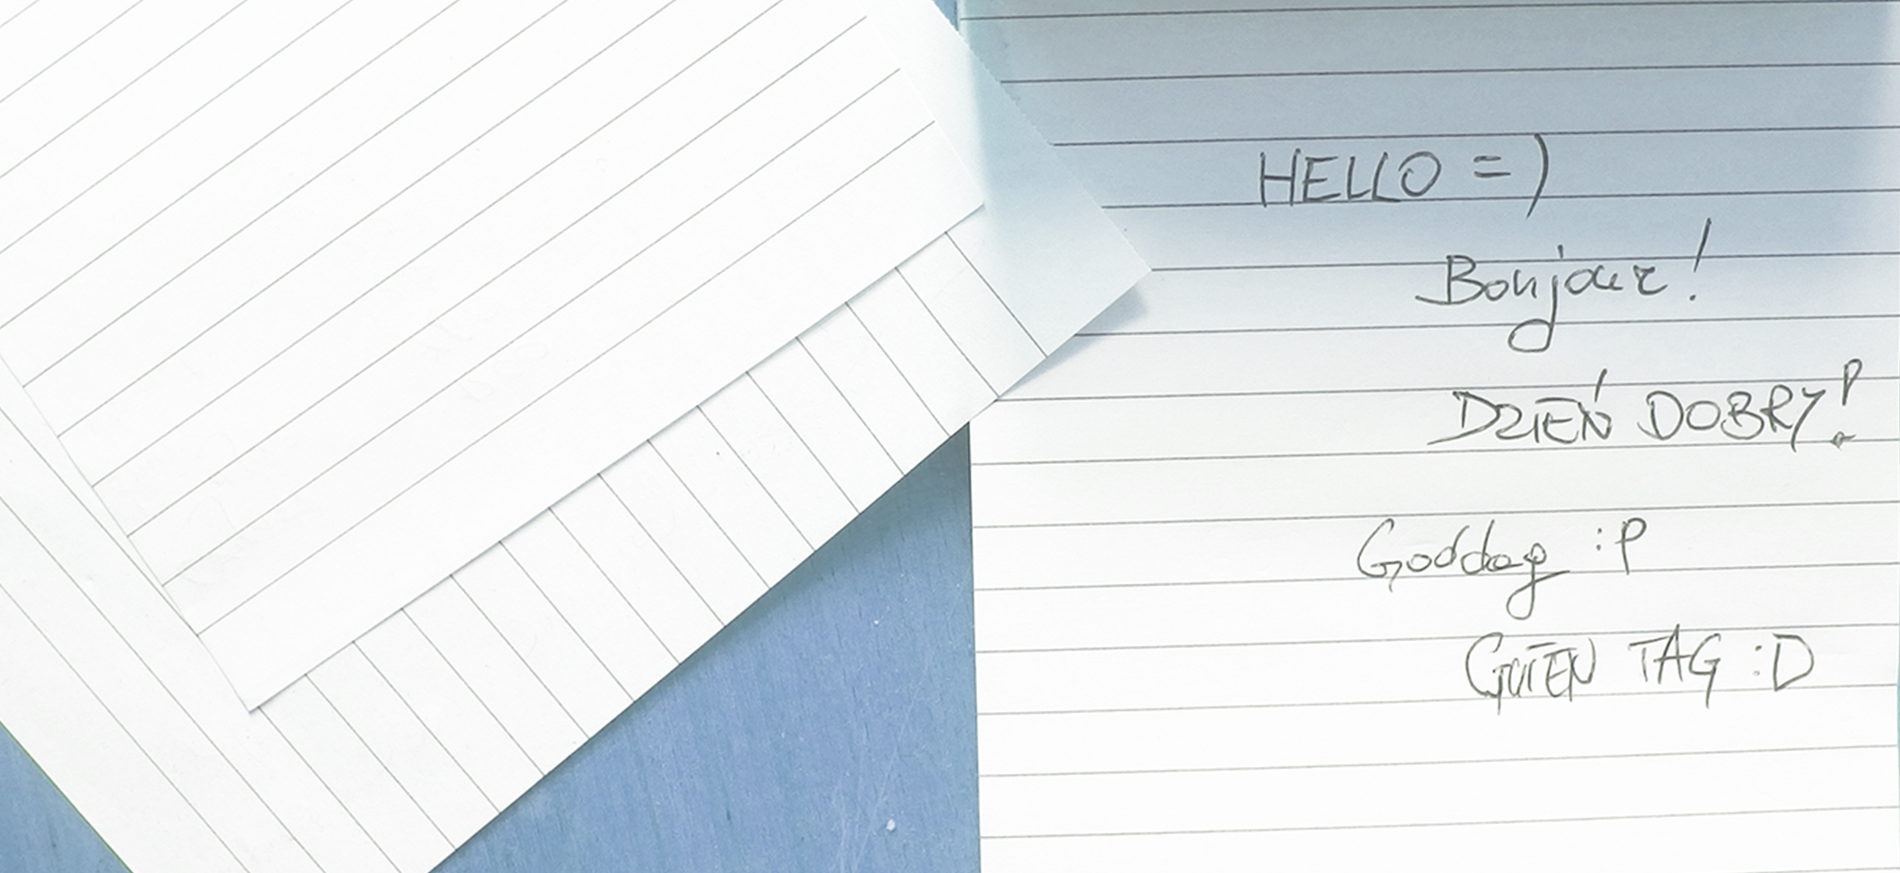 HELLO =)
Bonjour!
DZIEŃ DOBRY!
Goddag :P
GUTEN TAG :D